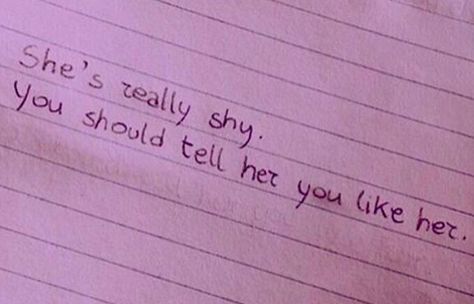 She's really shy.
You should tell her you like her.